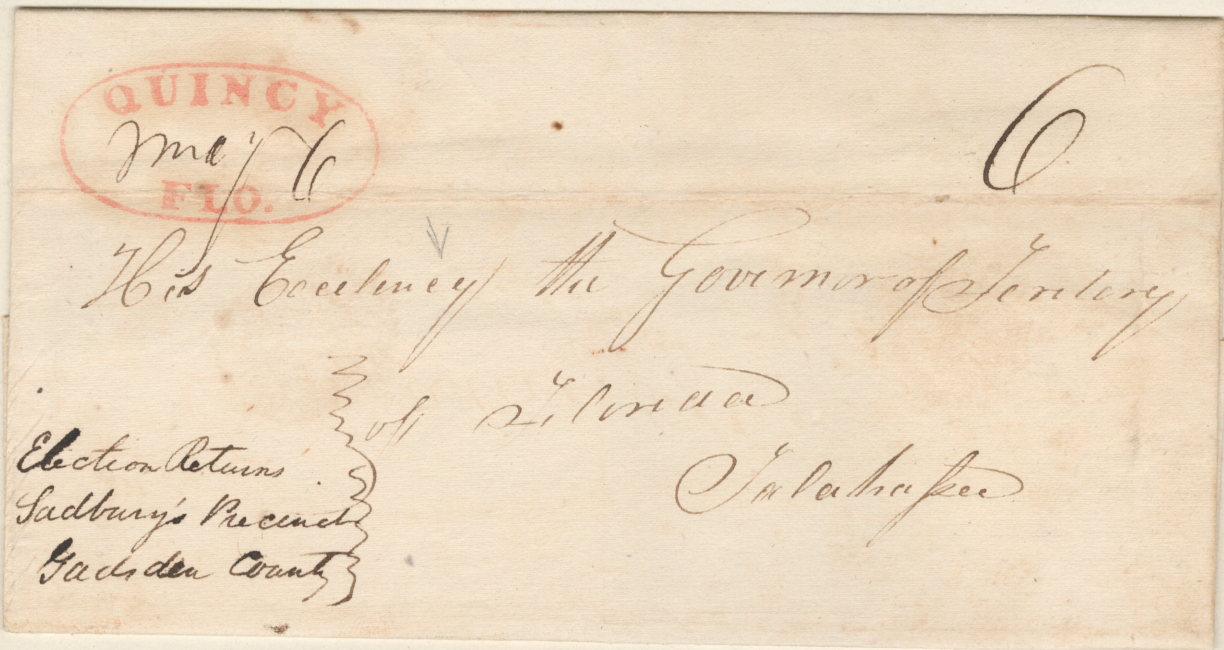 QUINCY
May 6
FLO.
6
His Excelency the Governor of Teritory
of Florida
Talahassee
Election Returns
Sadbury's Precinct
Gadsden County